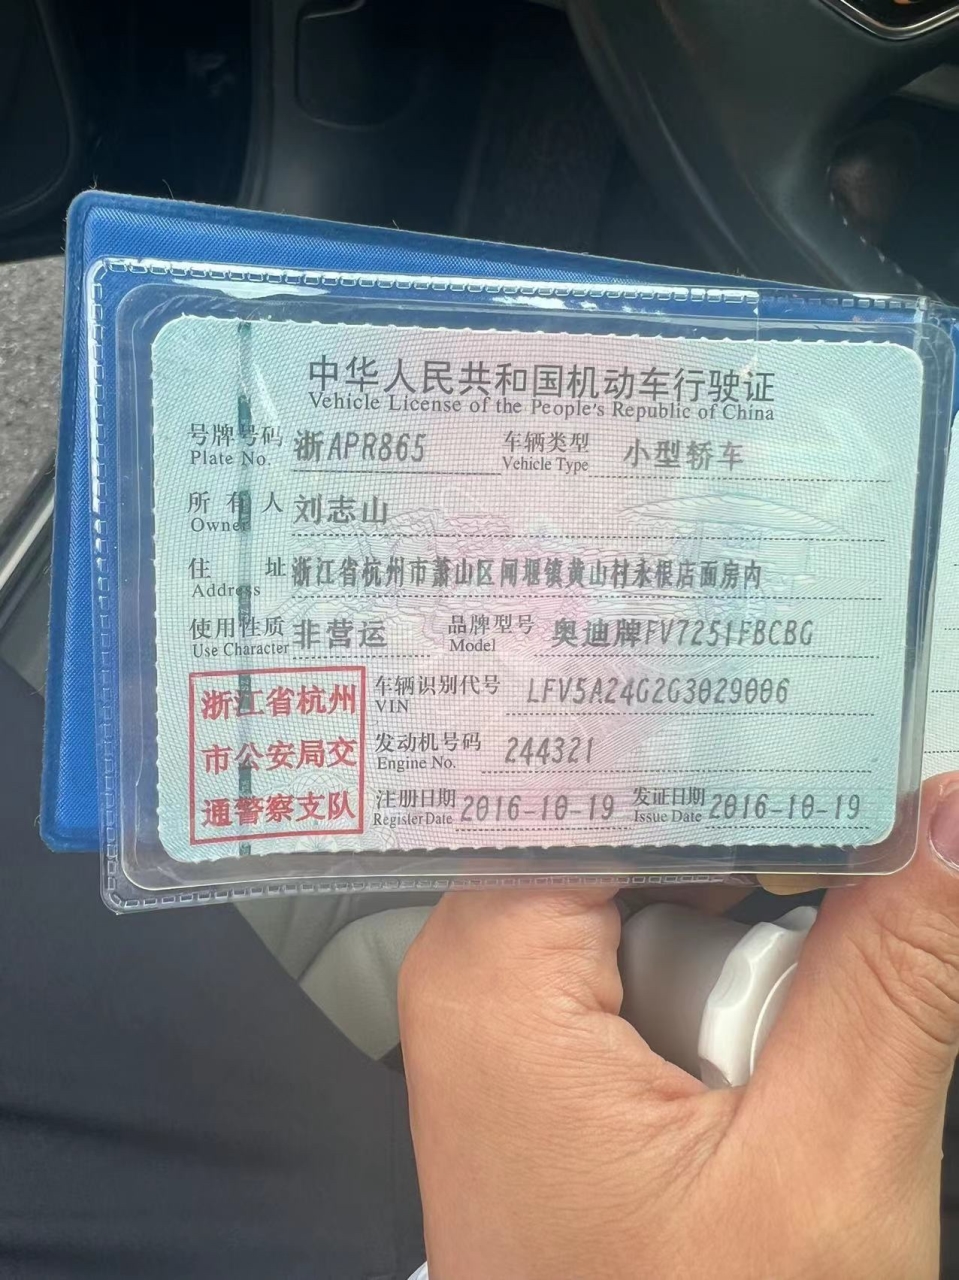 中华人民共和国机动车行驶证
Vehicle License of the People's Republic of China
号牌号码 浙APR865 车辆类型 小型轿车
Plate No. Vehicle Type
所有人 刘志山
Owner
住址 浙江省杭州市萧山区闻堰镇黄山村永根店面房内
Address
使用性质 非营运 品牌型号 奥迪牌FV7251FBCBG
Use Character Model
浙江省杭州
市公安局交
通警察支队
车辆识别代号 LFV5A24G2G3029006
VIN
发动机号码 244321
Engine No.
注册日期 2016-10-19 发证日期 2016-10-19
Register Date Issue Date